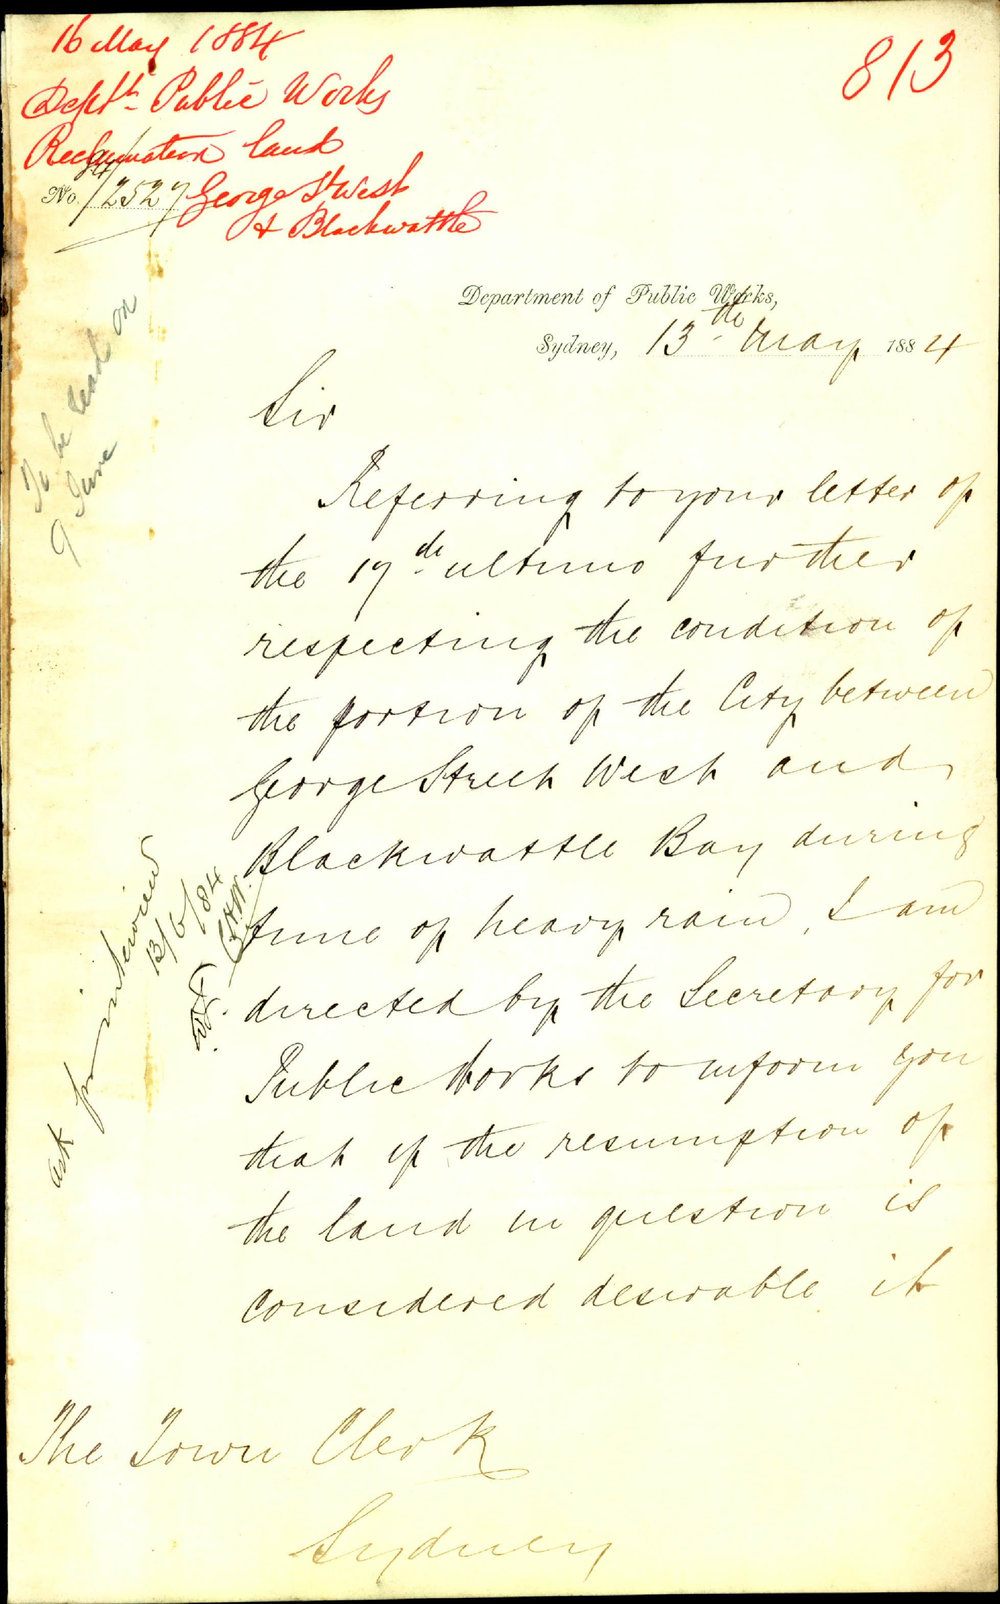 16 May 1884
Deptt Public Works
Reclamation land
George St West
& Blackwattle
813
No. 84/2527
Department of Public Works,
Sydney, 13th May 1884
To be read on
9 June
Sir
Referring to your letter of
the 17th ultimo further
respecting the condition of
the portion of the City between
George Street West and
Blackwattle Bay during
time of heavy rain, I am
directed by the Secretary for
Public Works to inform you
that if the resumption of
the land in question is
considered desirable it
Ask for interview
13/6/84
The Town Clerk
Sydney